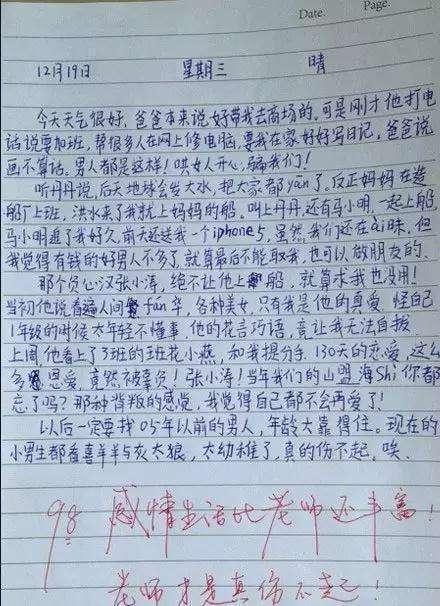 Date.
Page.
12月19日 星期三 晴
今天天气很好,爸爸本来说好带我去商场的,可是刚才他打电
话说要加班,帮很多人在网上修电脑,要我在家好好写日记,爸爸说
画不算话。男人都是这样!哄女人开心,骗我们!
听丹丹说,后天地球会发大水,把大家都yān了。反正妈妈在造
船厂上班,洪水来了我就上妈妈的船。叫上丹丹,还有马小明,一起上船,
马小明追了我好久,前天还送我一个iphone5,虽然我们还在ài昧,但
我觉得有钱的好男人不多了,就算最后不能取我,也可以做朋友的。
那个负心汉张小涛,绝不让他上船,就算求我也没用!
当初他说看遍人间fán华,各种美女,只有我是他的真爱,怪自己
1年级的时候太年轻不懂事,他的花言巧语,竟让我无法自拔
上周,他看上了3班的班花小燕,和我提分手,130天的恋爱,这么
多恩爱,竟然被辜负!张小涛!当年我们的山盟海Shi你都
忘了吗?那种背叛的感觉,我觉得自己都不会再爱了!
以后一定要找05年以前的男人,年龄大靠得住。现在的
小男生都看喜羊羊与灰太狼,太幼稚了,真的伤不起,唉、
98 感情生活比老师还丰富!
老师才是真伤不起!